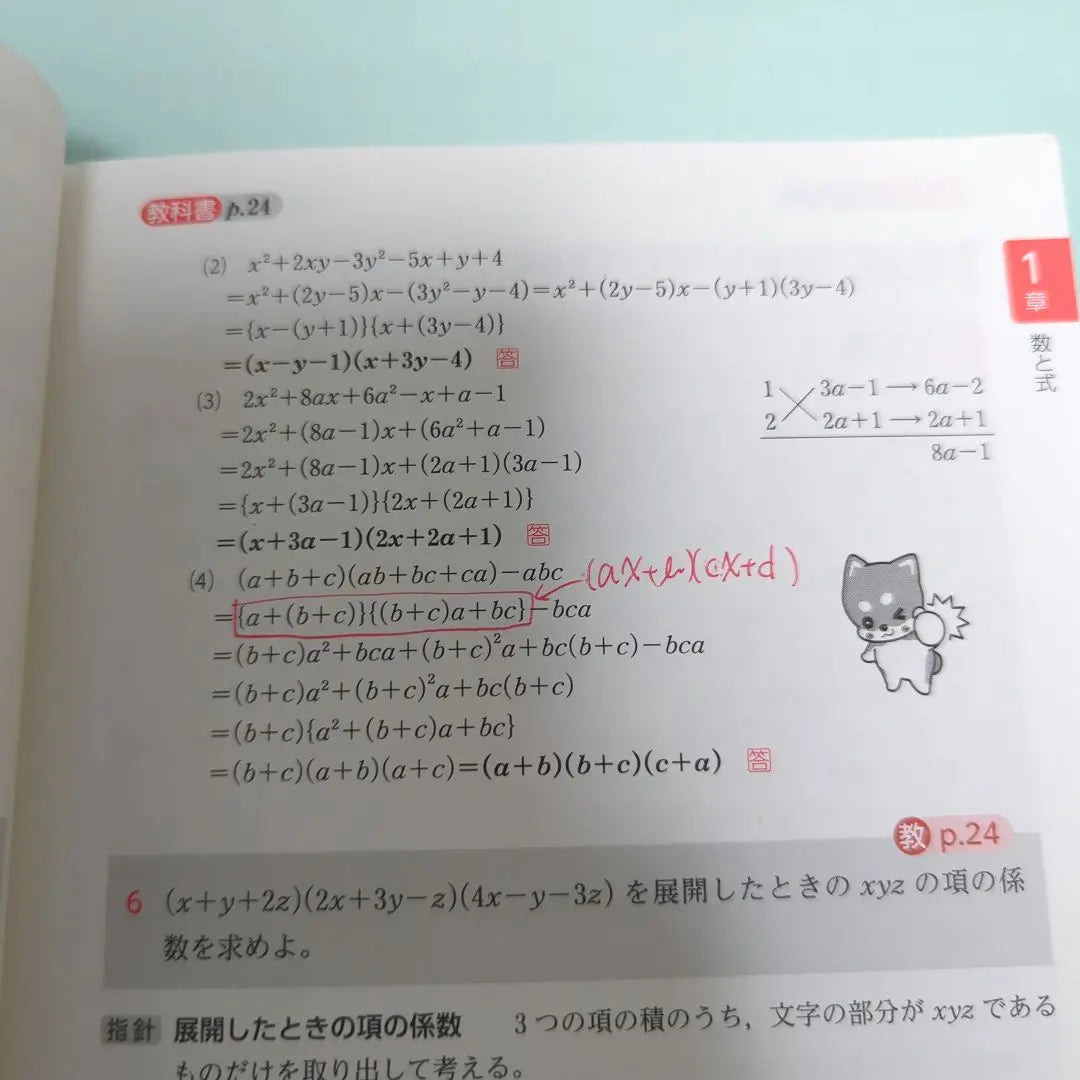 教科書 p.24
(2) x²+2xy−3y²−5x+y+4
=x²+(2y−5)x−(3y²−y−4)=x²+(2y−5)x−(y+1)(3y−4)
={x−(y+1)}{x+(3y−4)}
=(x−y−1)(x+3y−4) 答
(3) 2x²+8ax+6a²−x+a−1
=2x²+(8a−1)x+(6a²+a−1)
=2x²+(8a−1)x+(2a+1)(3a−1)
={x+(3a−1)}{2x+(2a+1)}
=(x+3a−1)(2x+2a+1) 答
1 3a−1→6a−2
2 2a+1→2a+1
8a−1
(4) (a+b+c)(ab+bc+ca)−abc
(ax+b)(cx+d)
={a+(b+c)}{(b+c)a+bc}−bca
=(b+c)a²+bca+(b+c)²a+bc(b+c)−bca
=(b+c)a²+(b+c)²a+bc(b+c)
=(b+c){a²+(b+c)a+bc}
=(b+c)(a+b)(a+c)=(a+b)(b+c)(c+a) 答
1
章
数と式
教 p.24
6 (x+y+2z)(2x+3y−z)(4x−y−3z) を展開したときの xyz の項の係
数を求めよ。
指針 展開したときの項の係数 3つの項の積のうち，文字の部分が xyz である
ものだけを取り出して考える。